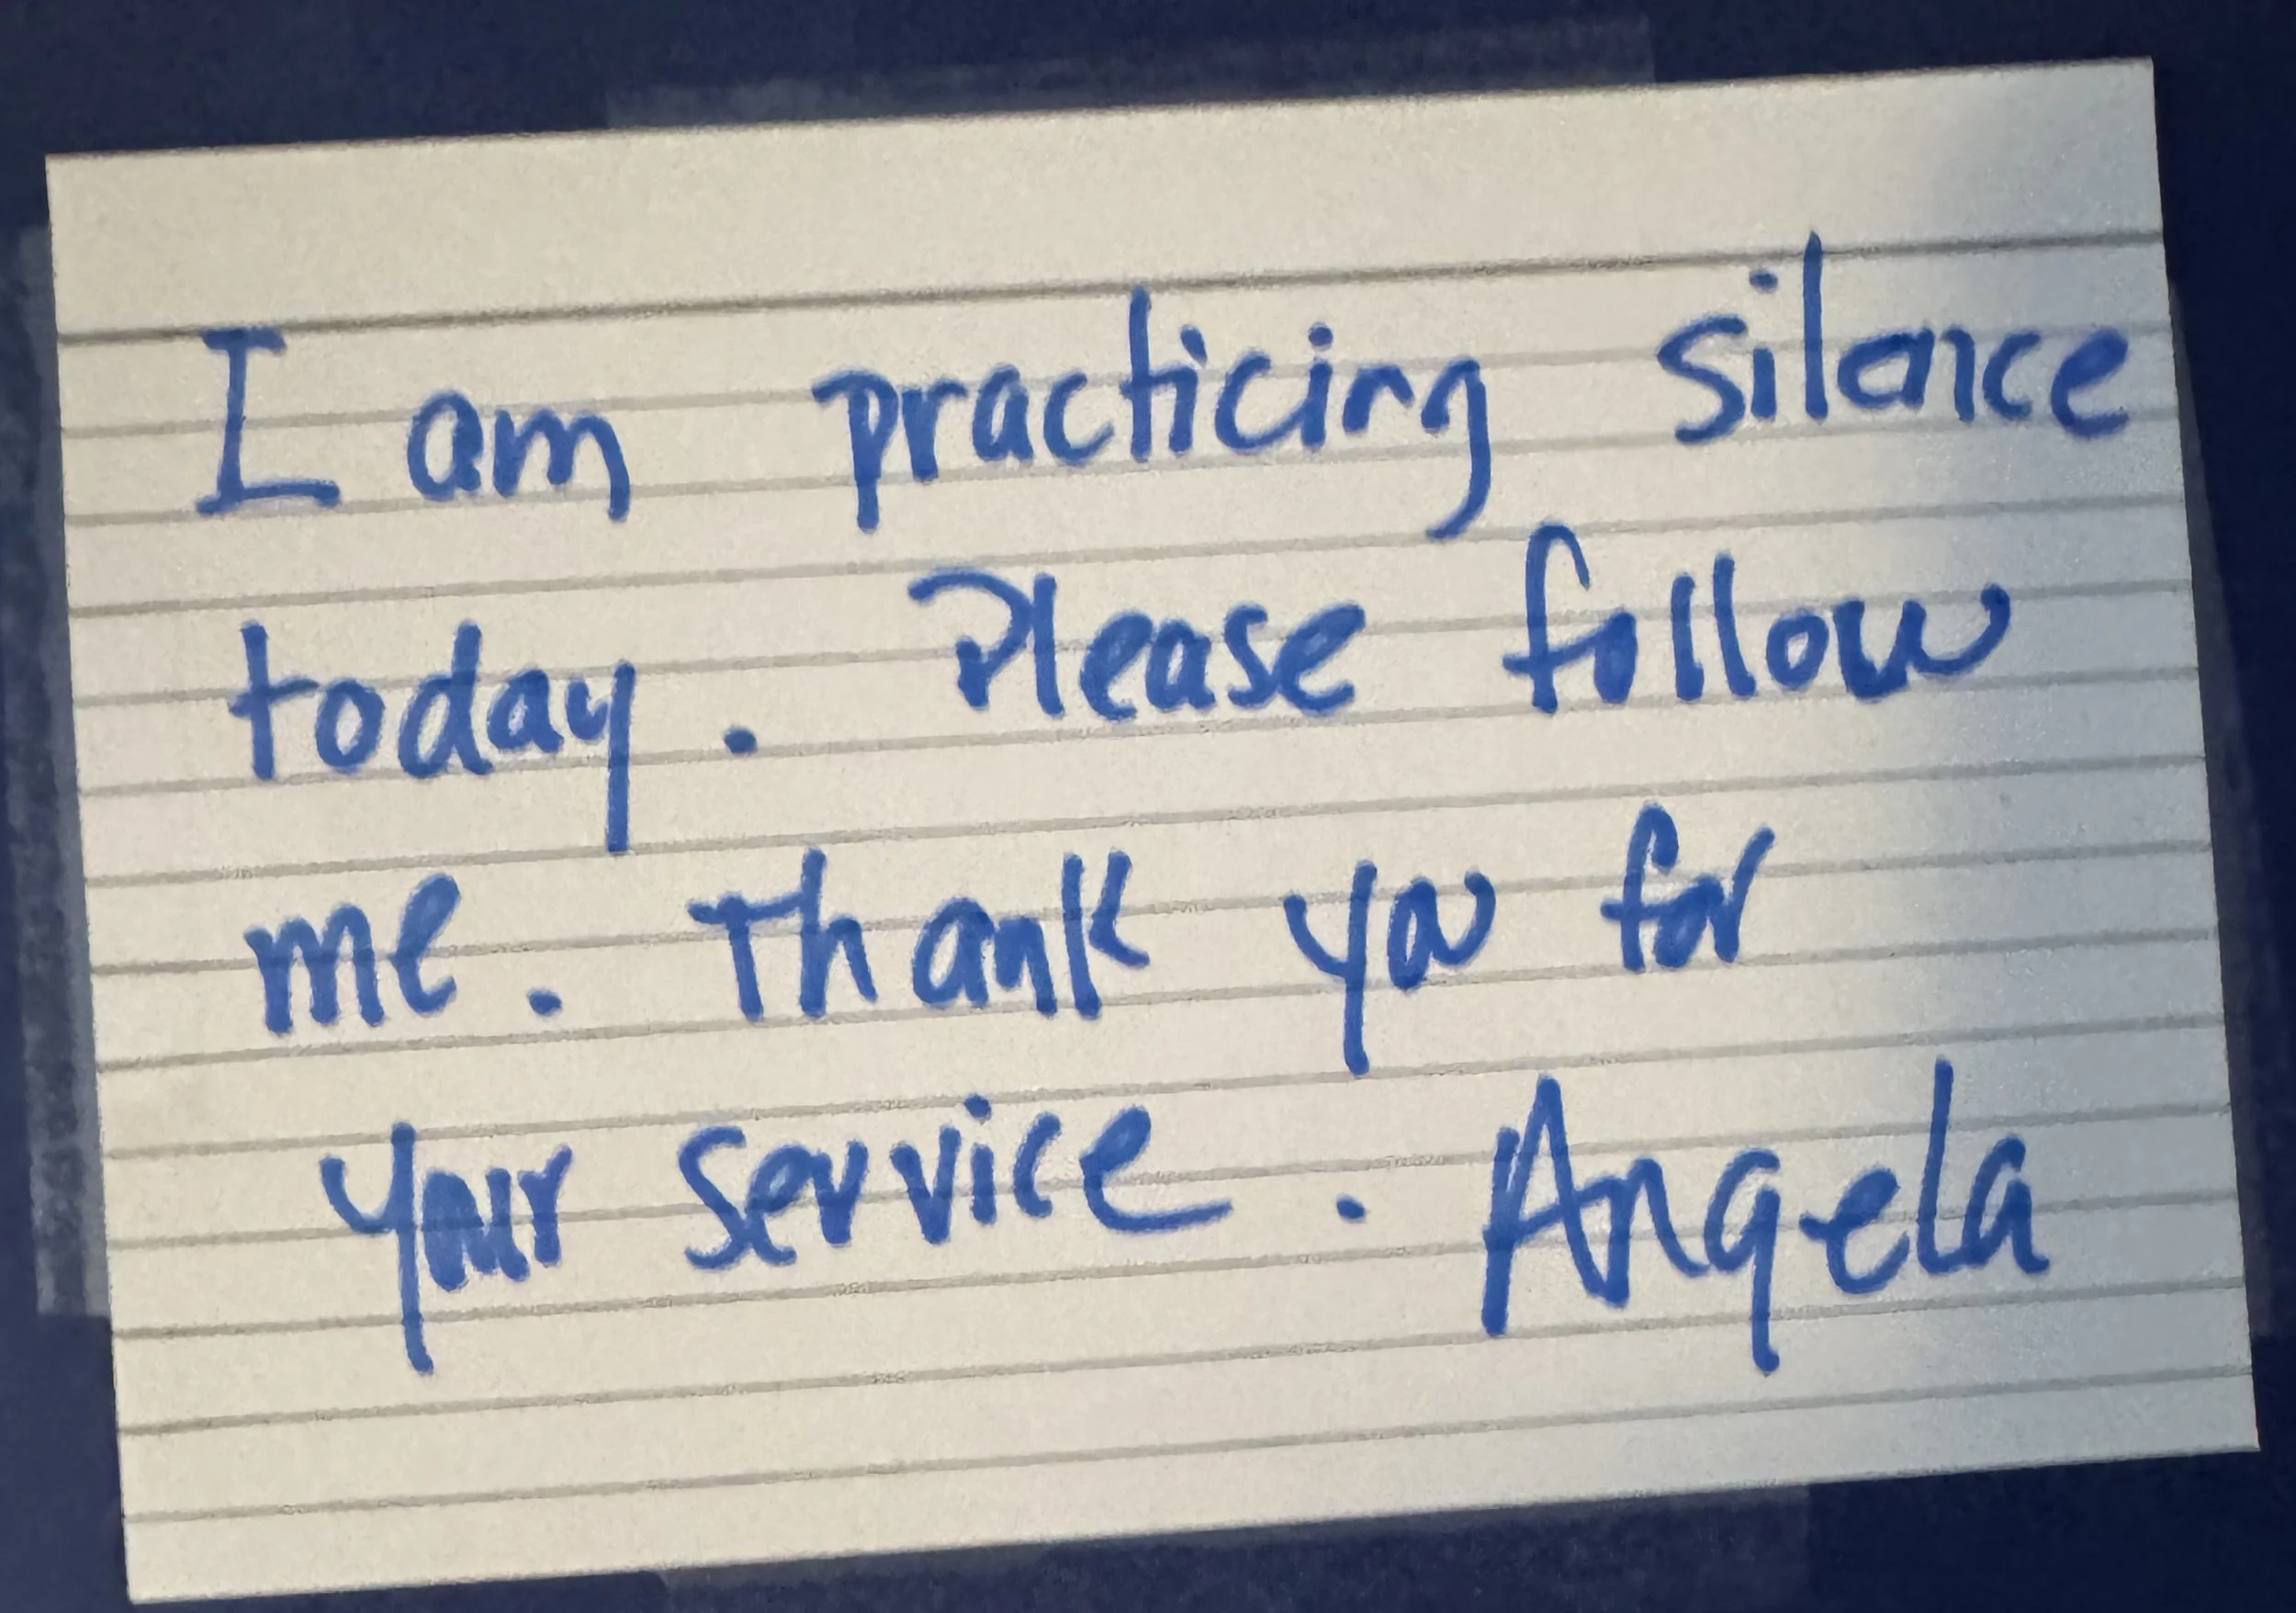 I am practicing silence
today. Please follow
me. Thank you for
your service. Angela